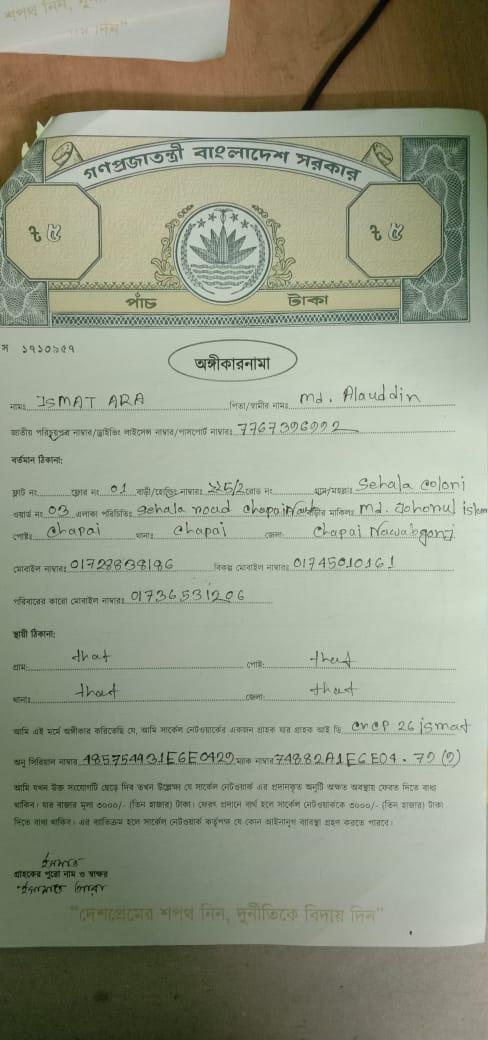 গণপ্রজাতন্ত্রী বাংলাদেশ সরকার
৳ ৫
৳ ৫
পাঁচ টাকা
অঙ্গীকারনামা
নামঃ ISMAT ARA পিতা/স্বামীর নামঃ Md. Alauddin
জাতীয় পরিচয়পত্র নাম্বার/ড্রাইভিং লাইসেন্স নাম্বার/পাসপোর্ট নাম্বারঃ
বর্তমান ঠিকানা:
ফ্লাট নং ফ্লোর নং 01 বাড়ী/হোল্ডিং নাম্বারঃ রোড নং গ্রাম/মহল্লাঃ Sehala coloni
ওয়ার্ড নং 03 এলাকা পরিচিতিঃ Sehala road বাড়ীর মালিকঃ Md.
পোষ্টঃ Chapai থানাঃ Chapai জেলা: Chapai Nawabgonj
মোবাইল নাম্বারঃ বিকল্প মোবাইল নাম্বারঃ 01745010161
পরিবারের কারো মোবাইল নাম্বারঃ 01736531206
স্থায়ী ঠিকানা:
গ্রাম: পোষ্ট:
থানাঃ জেলা:
আমি এই মর্মে অঙ্গীকার করিতেছি যে, আমি সার্কেল নেটওয়ার্কের একজন গ্রাহক যার গ্রাহক আই ডি
অনু সিরিয়াল নাম্বার ম্যাক নাম্বার
আমি যখন উক্ত সংযোগটি ছেড়ে দিব তখন উল্লেক্ষ্য যে সার্কেল নেটওয়ার্ক এর প্রদানকৃত অনুটি অক্ষত অবস্থায় ফেরত দিতে বাধ্য
থাকিব। যার বাজার মূল্য ৩০০০/- (তিন হাজার) টাকা। ফেরৎ প্রদানে ব্যর্থ হলে সার্কেল নেটওয়ার্ককে ৩০০০/- (তিন হাজার) টাকা
দিতে বাধ্য থাকিব। এর ব্যতিক্রম হলে সার্কেল নেটওয়ার্ক কর্তৃপক্ষ যে কোন আইনানুগ ব্যবস্থা গ্রহণ করতে পারবে।
ইসমাত
গ্রাহকের পুরো নাম ও স্বাক্ষর
ইসমাত আরা
"দেশপ্রেমের শপথ নিন, দুর্নীতিকে বিদায় দিন"